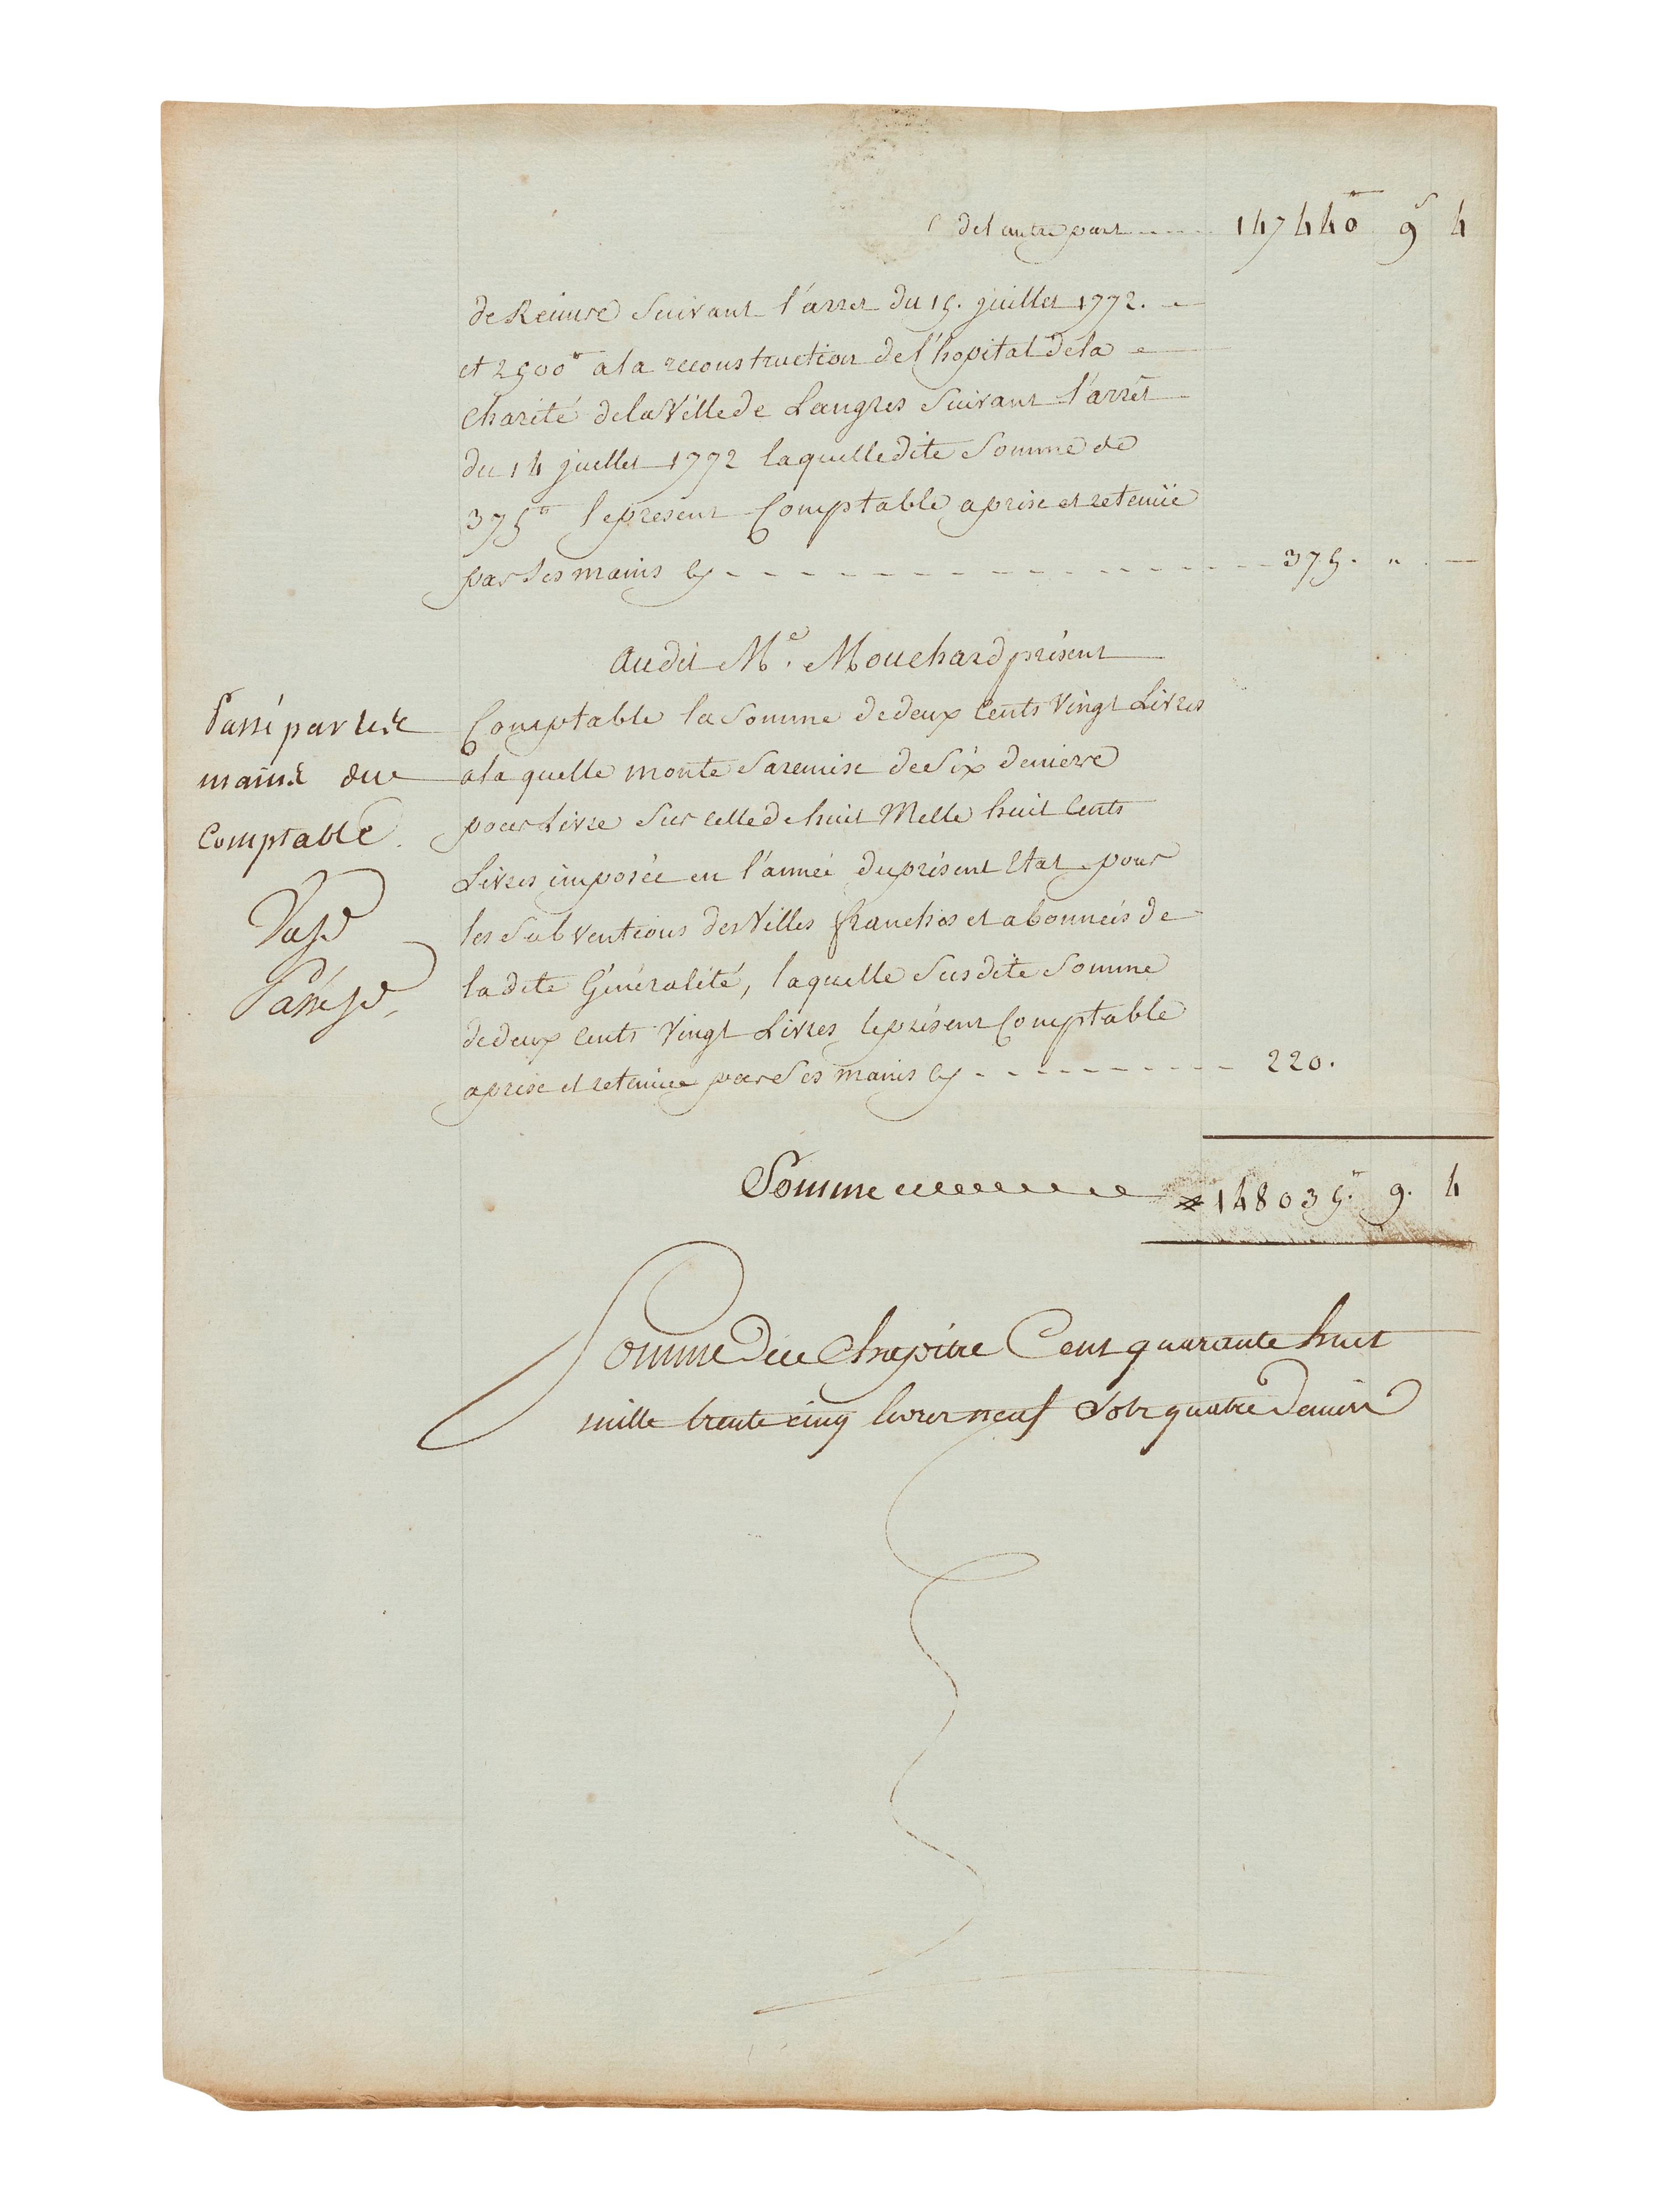 de l'autre part 147440ᵗᵗ 9ˢ 4
de Reims suivant l'arret du 15. juillet 1772.
et 2500ᵗᵗ a la reconstruction de l'hopital de la
Charité de la Ville de Langres suivant l'arrêt
du 14 juillet 1772 laquelle dite Somme de
375ᵗᵗ le present Comptable a prise et retenüe
par ses mains cy - - - 375. " —
Audit Mᵉ. Mouchard présent
Passé par les
mains du
Comptable.
Comptable la Somme de deux Cents Vingt Livres
a la quelle monte sa remise de Six deniers
pour Livre sur celle de huit Mille huit Cents
Livres imposée en l'année du présent Etat pour
les Subventions des Villes franches et abonnées de
la dite Généralité, laquelle Susdite Somme
de deux Cents Vingt Livres le présent Comptable
a prise et retenue par Ses mains cy - - - 220.
Somme 148035ᵗᵗ. 9. 4
Somme du Chapitre Cent quarante huit
mille trente cinq livres neuf Sols quatre deniers